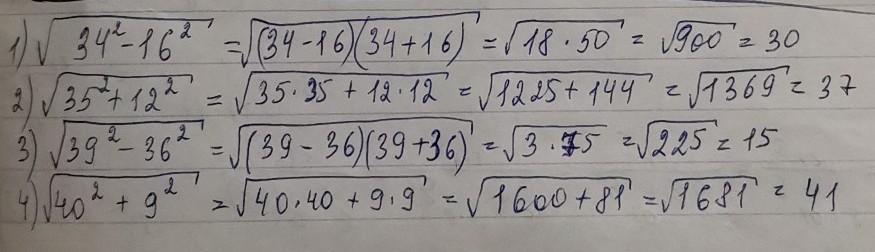 1) √(34² - 16²) = √((34 - 16)(34 + 16)) = √(18 · 50) = √900 = 30
2) √(35² + 12²) = √(35 · 35 + 12 · 12) = √(1225 + 144) = √1369 = 37
3) √(39² - 36²) = √((39 - 36)(39 + 36)) = √(3 · 75) = √225 = 15
4) √(40² + 9²) = √(40 · 40 + 9 · 9) = √(1600 + 81) = √1681 = 41